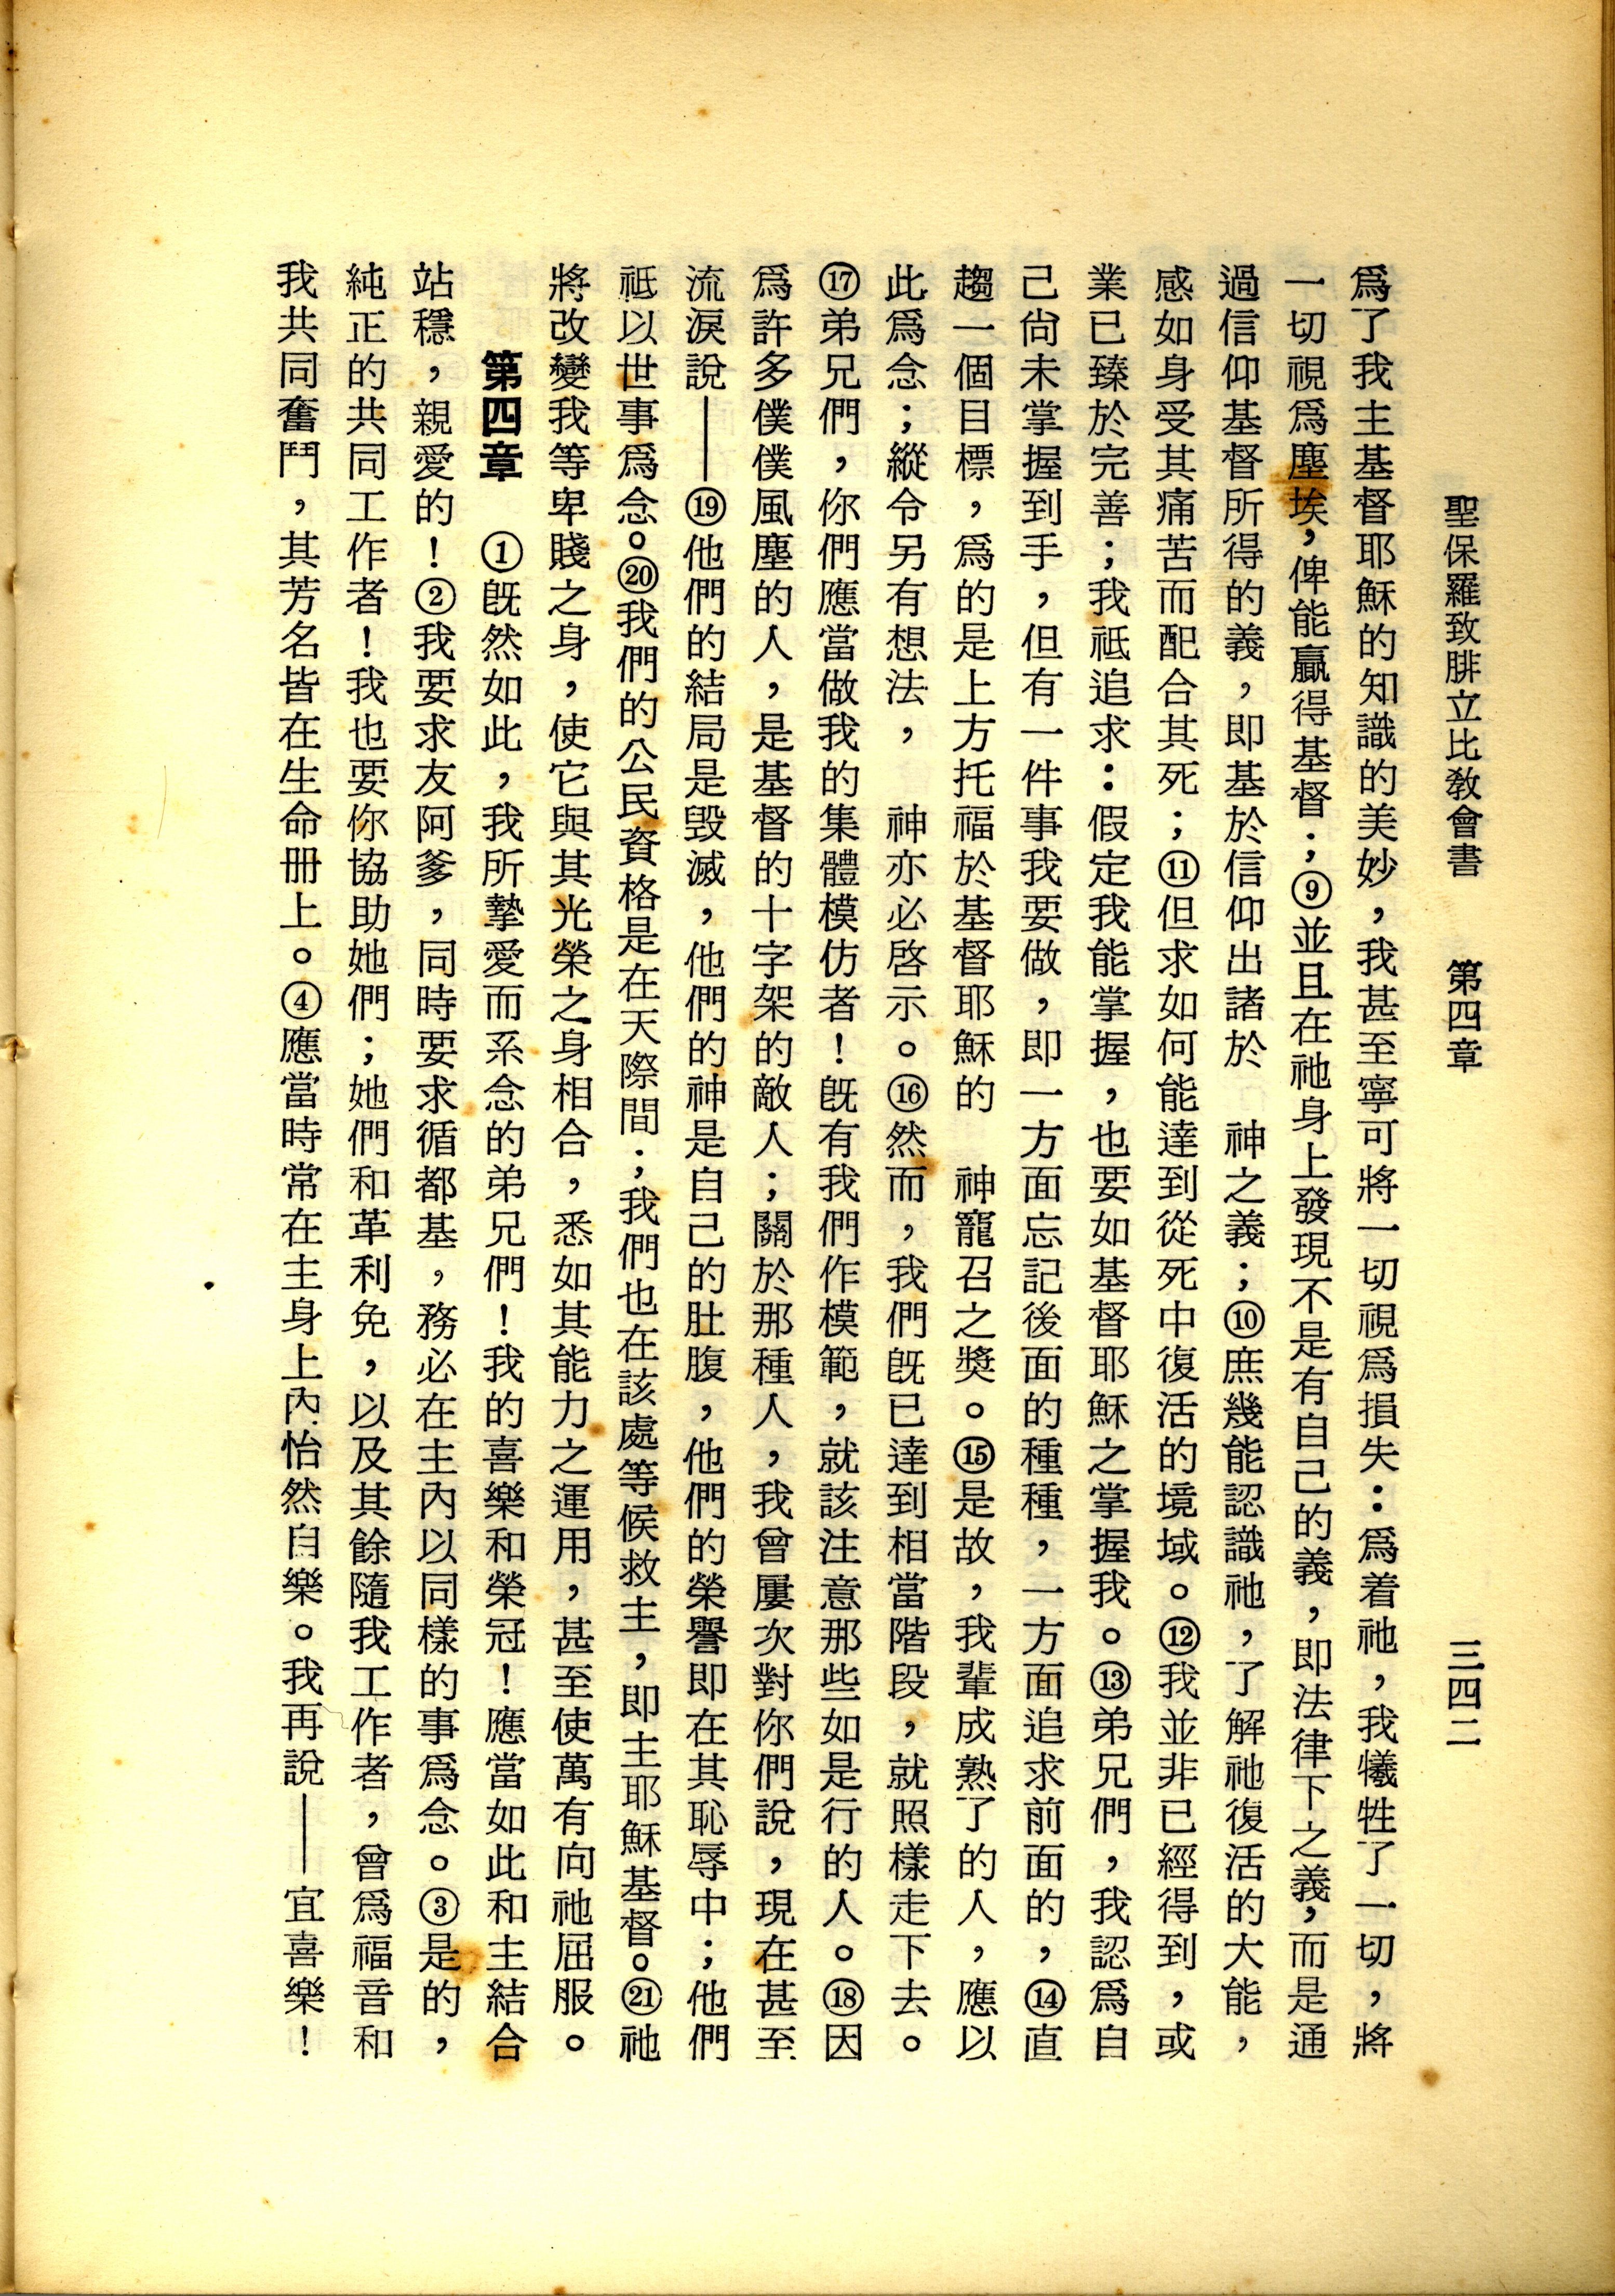 聖保羅致腓立比敎會書　第四章　三四二
爲了我主基督耶穌的知識的美妙，我甚至寧可將一切視爲損失：爲着祂，我犧牲了一切，將
一切視爲塵埃，俾能贏得基督；⑨並且在祂身上發現不是有自己的義，即法律下之義，而是通
過信仰基督所得的義，即基於信仰出諸於　神之義；⑩庶幾能認識祂，了解祂復活的大能，
感如身受其痛苦而配合其死；⑪但求如何能達到從死中復活的境域。⑫我並非已經得到，或
業已臻於完善；我祇追求：假定我能掌握，也要如基督耶穌之掌握我。⑬弟兄們，我認爲自
己尙未掌握到手，但有一件事我要做，即一方面忘記後面的種種，一方面追求前面的，⑭直
趨一個目標，爲的是上方托福於基督耶穌的　神寵召之獎。⑮是故，我輩成熟了的人，應以
此爲念；縱令另有想法，　神亦必啓示。⑯然而，我們旣已達到相當階段，就照樣走下去。
⑰弟兄們，你們應當做我的集體模仿者！旣有我們作模範，就該注意那些如是行的人。⑱因
爲許多僕僕風塵的人，是基督的十字架的敵人；關於那種人，我曾屢次對你們說，現在甚至
流淚說——⑲他們的結局是毀滅，他們的神是自己的肚腹，他們的榮譽即在其恥辱中；他們
祇以世事爲念。⑳我們的公民資格是在天際間；我們也在該處等候救主，即主耶穌基督。㉑祂
將改變我等卑賤之身，使它與其光榮之身相合，悉如其能力之運用，甚至使萬有向祂屈服。
第四章　①旣然如此，我所摯愛而系念的弟兄們！我的喜樂和榮冠！應當如此和主結合
站穩，親愛的！②我要求友阿爹，同時要求循都基，務必在主內以同樣的事爲念。③是的，
純正的共同工作者！我也要你協助她們；她們和革利免，以及其餘隨我工作者，曾爲福音和
我共同奮鬥，其芳名皆在生命冊上。④應當時常在主身上內怡然自樂。我再說——宜喜樂！